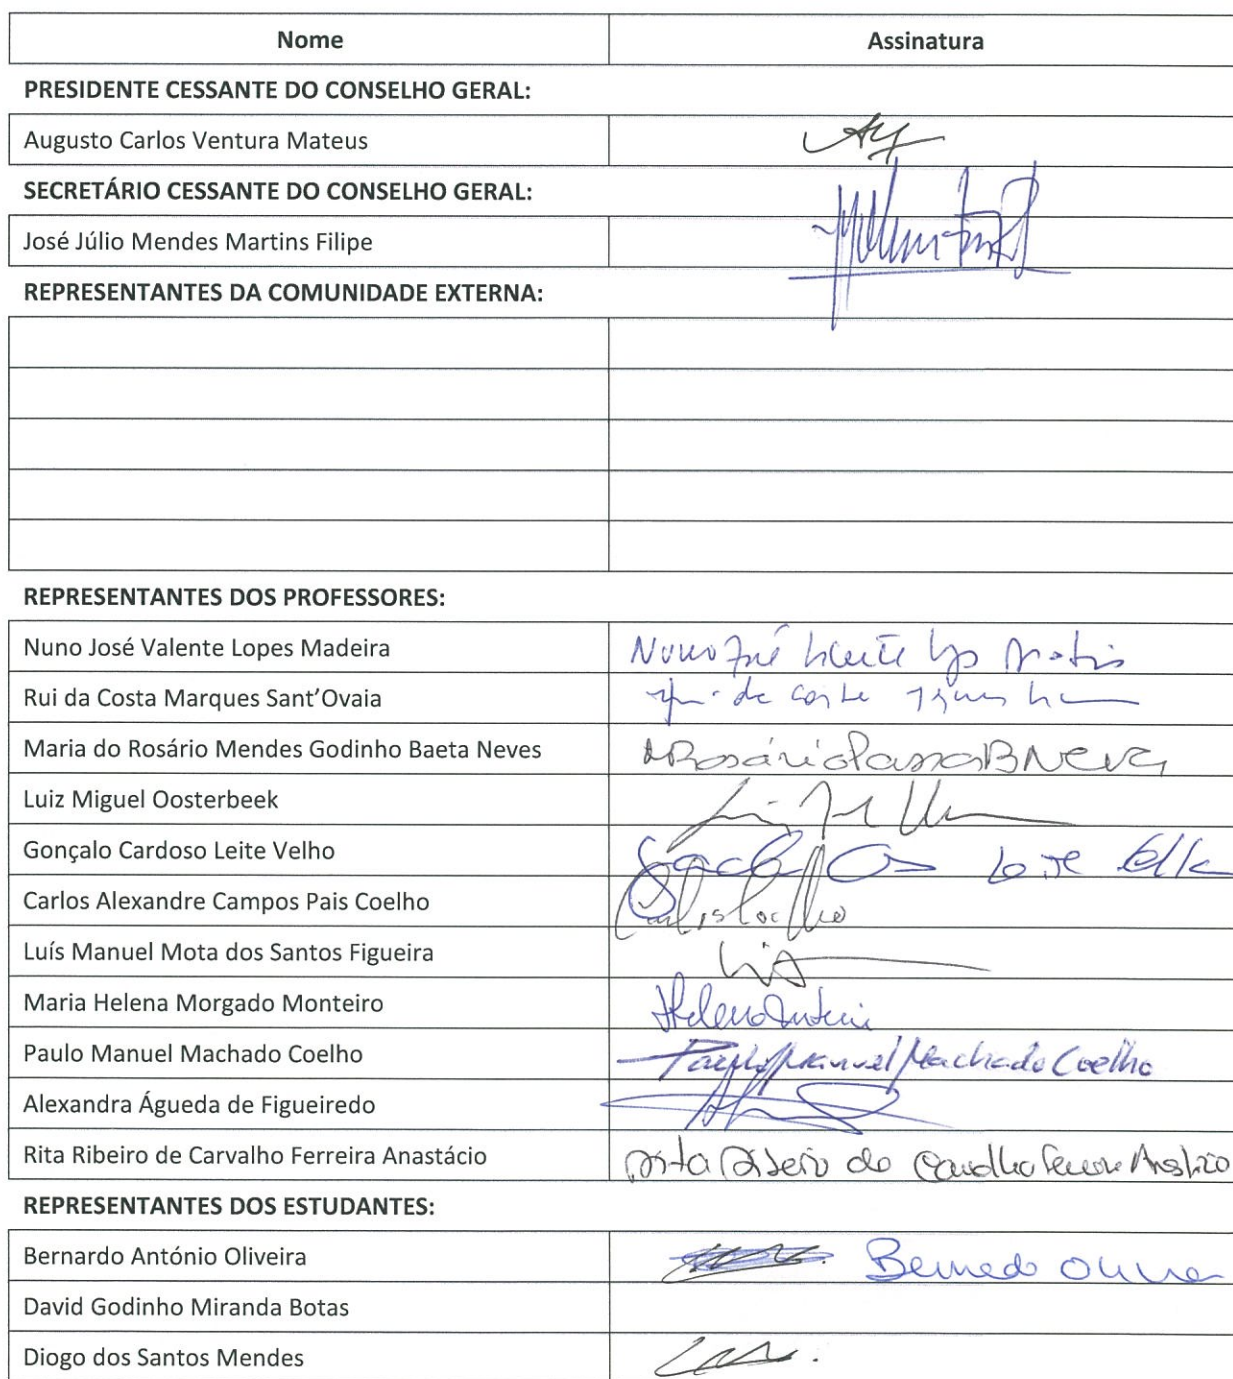 Nome Assinatura
PRESIDENTE CESSANTE DO CONSELHO GERAL:
Augusto Carlos Ventura Mateus
SECRETÁRIO CESSANTE DO CONSELHO GERAL:
José Júlio Mendes Martins Filipe
REPRESENTANTES DA COMUNIDADE EXTERNA:
REPRESENTANTES DOS PROFESSORES:
Nuno José Valente Lopes Madeira Nuno José
Rui da Costa Marques Sant’Ovaia da Costa
Maria do Rosário Mendes Godinho Baeta Neves MRosário BNeves
Luiz Miguel Oosterbeek
Gonçalo Cardoso Leite Velho
Carlos Alexandre Campos Pais Coelho Carlos Coelho
Luís Manuel Mota dos Santos Figueira
Maria Helena Morgado Monteiro Helena Monteiro
Paulo Manuel Machado Coelho Paulo Manuel Machado Coelho
Alexandra Águeda de Figueiredo
Rita Ribeiro de Carvalho Ferreira Anastácio Rita Ribeiro de Carvalho Ferreira Anastácio
REPRESENTANTES DOS ESTUDANTES:
Bernardo António Oliveira Bernardo Oliveira
David Godinho Miranda Botas
Diogo dos Santos Mendes